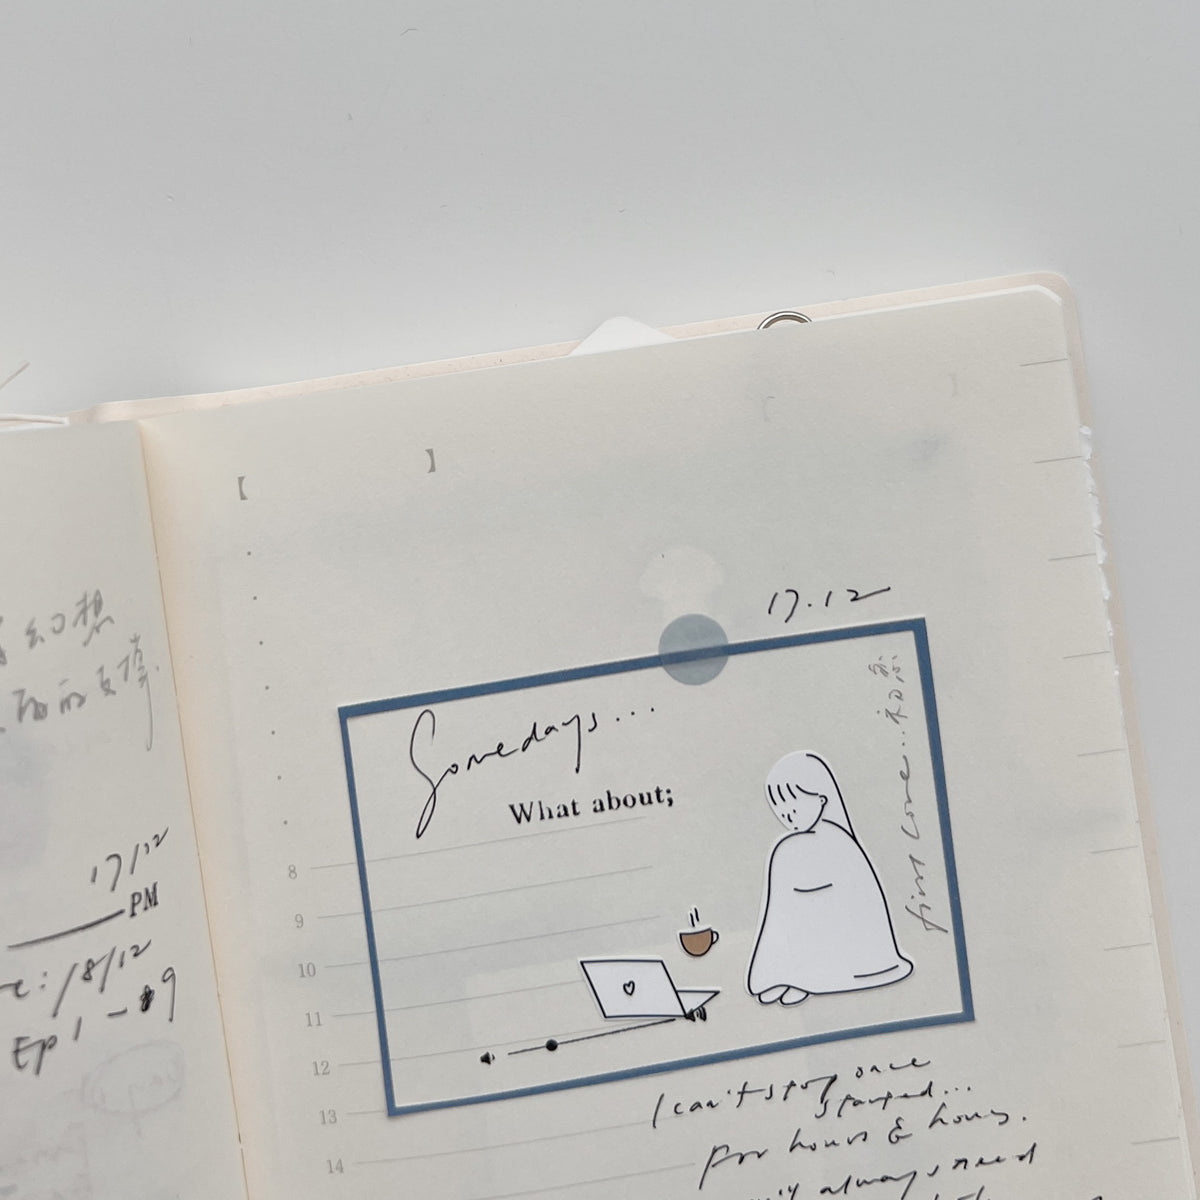 幻想
的支撐.
17/12
PM
: 18/12
Ep 1 - 9
【 】
17.12
Somedays...
What about;
first love...初恋
8
9
10
11
12
13
14
I can't stop once
started...
for hours & hours.
always need